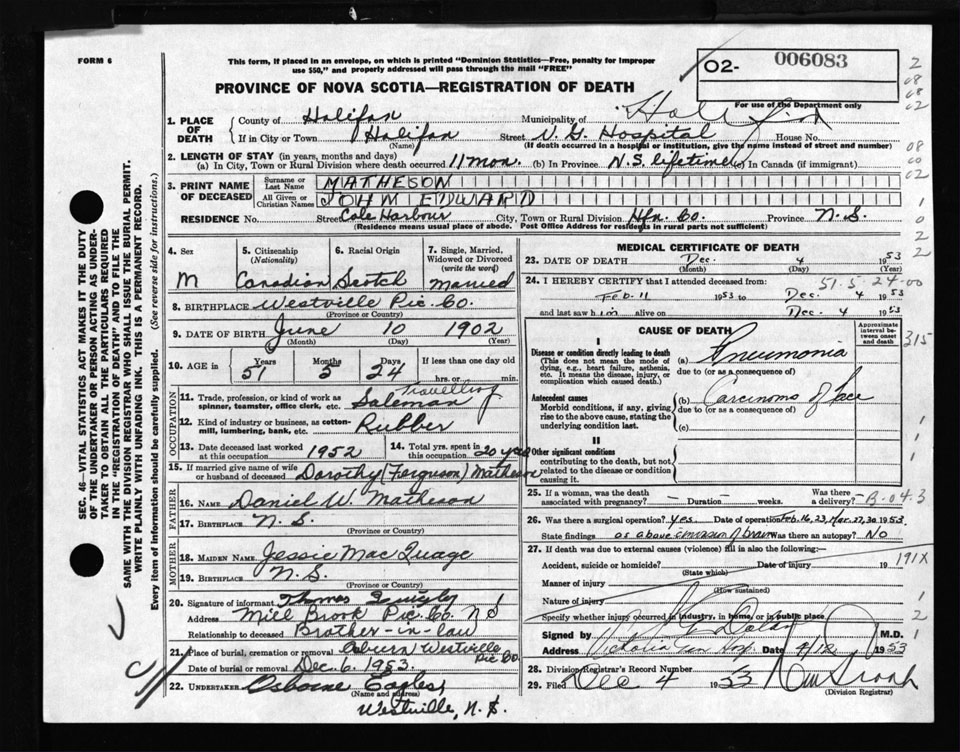 FORM 6
This form, if placed in an envelope, on which is printed "Dominion Statistics—Free, penalty for improper
use $50," and properly addressed will pass through the mail "FREE"
O2- 006083
For use of the Department only
PROVINCE OF NOVA SCOTIA—REGISTRATION OF DEATH
1. PLACE OF DEATH
County of Halifax Municipality of Halifax
If in City or Town Halifax Street V. G. Hospital House No.
(Name) (If death occurred in a hospital or institution, give the name instead of street and number)
2. LENGTH OF STAY (in years, months and days)
(a) In City, Town or Rural Division where death occurred 11 mon. (b) In Province N.S. lifetime (c) In Canada (if immigrant)
3. PRINT NAME OF DECEASED
Surname or Last Name MATHESON
All Given or Christian Names JOHN EDWARD
RESIDENCE No. Street Cole Harbour City, Town or Rural Division Hfx. Co. Province N.S.
(Residence means usual place of abode. Post Office Address for residents in rural parts not sufficient)
4. Sex M
5. Citizenship (Nationality) Canadian
6. Racial Origin Scotch
7. Single, Married, Widowed or Divorced (write the word) Married
8. BIRTHPLACE Westville Pic. Co.
(Province or Country)
9. DATE OF BIRTH June 10 1902
(Month) (Day) (Year)
10. AGE in Years 51 Months 5 Days 24 If less than one day old
hrs. or min.
OCCUPATION
11. Trade, profession, or kind of work as spinner, teamster, office clerk, etc. Travelling Saleman
12. Kind of industry or business, as cotton-mill, lumbering, bank, etc. Rubber
13. Date deceased last worked at this occupation 1952
14. Total yrs. spent in this occupation 20 yrs
15. If married give name of wife or husband of deceased Dorothy (Ferguson) Matheson
FATHER
16. NAME Daniel W. Matheson
17. BIRTHPLACE N.S.
(Province or Country)
MOTHER
18. MAIDEN NAME Jessie MacQuage
19. BIRTHPLACE N.S.
(Province or Country)
20. Signature of informant Thomas
Address Mill Brook Pic. Co. N S
Relationship to deceased Brother-in-law
21. Place of burial, cremation or removal Auburn Westville Pic Co
Date of burial or removal Dec. 6, 1953.
22. UNDERTAKER Osborne Eagles
(Name and address)
Westville, N.S.
MEDICAL CERTIFICATE OF DEATH
23. DATE OF DEATH Dec. 4 1953
(Month) (Day) (Year)
24. I HEREBY CERTIFY that I attended deceased from:
51.5-24-00
Feb. 11 1953 to Dec. 4 1953
and last saw him alive on Dec. 4 1953
CAUSE OF DEATH
Approximate interval between onset and death
I
Disease or condition directly leading to death
(This does not mean the mode of dying, e.g., heart failure, asthenia, etc. It means the disease, injury, or complication which caused death.)
(a) Pneumonia
due to (or as a consequence of)
Antecedent causes
Morbid conditions, if any, giving rise to the above cause, stating the underlying condition last.
(b) Carcinoma of face
due to (or as a consequence of)
(c)
II
Other significant conditions
contributing to the death, but not related to the disease or condition causing it.
25. If a woman, was the death associated with pregnancy? — Duration weeks. Was there a delivery? -
B-04.3
26. Was there a surgical operation? yes. Date of operation Feb. 16, 23, Mar. 27, 30 1953
State findings as above & invasion of brain Was there an autopsy? No
27. If death was due to external causes (violence) fill in also the following:—
Accident, suicide or homicide? Date of injury 19
191X
(State which)
Manner of injury
(How sustained)
Nature of injury
Specify whether injury occurred in industry, in home, or in public place
Signed by Dolan M.D.
Address Victoria Gen Hosp. Date 4/12 1953
28. Division Registrar's Record Number
29. Filed Dec 4 1953
(Division Registrar)
SEC. 46—VITAL STATISTICS ACT MAKES IT THE DUTY
OF THE UNDERTAKER OR PERSON ACTING AS UNDER-
TAKER TO OBTAIN ALL THE PARTICULARS REQUIRED
IN THE "REGISTRATION OF DEATH" AND TO FILE THE
SAME WITH THE DIVISION REGISTRAR WHO SHALL ISSUE THE BURIAL PERMIT.
WRITE PLAINLY WITH UNFADING INK. THIS IS A PERMANENT RECORD.
Every item of information should be carefully supplied. (See reverse side for instructions.)
2
08
68
02
08
60
02
1
0
2
2
315
1
1
1
1
2
1